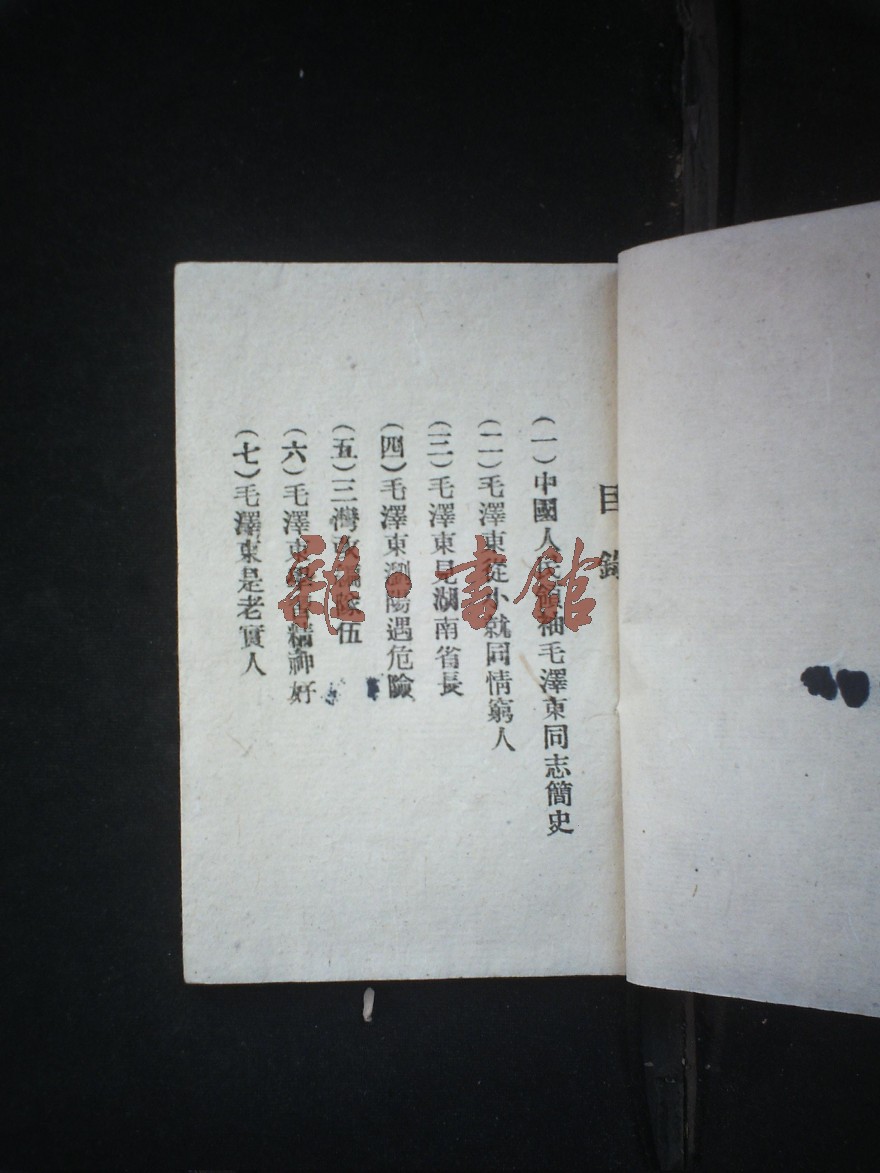 目錄
(一)中國人民領袖毛澤東同志簡史
(二)毛澤東從小就同情窮人
(三)毛澤東見湖南省長
(四)毛澤東瀏陽遇危險
(五)三灣改編隊伍
(六)毛澤東學習精神好
(七)毛澤東是老實人
雜·書館